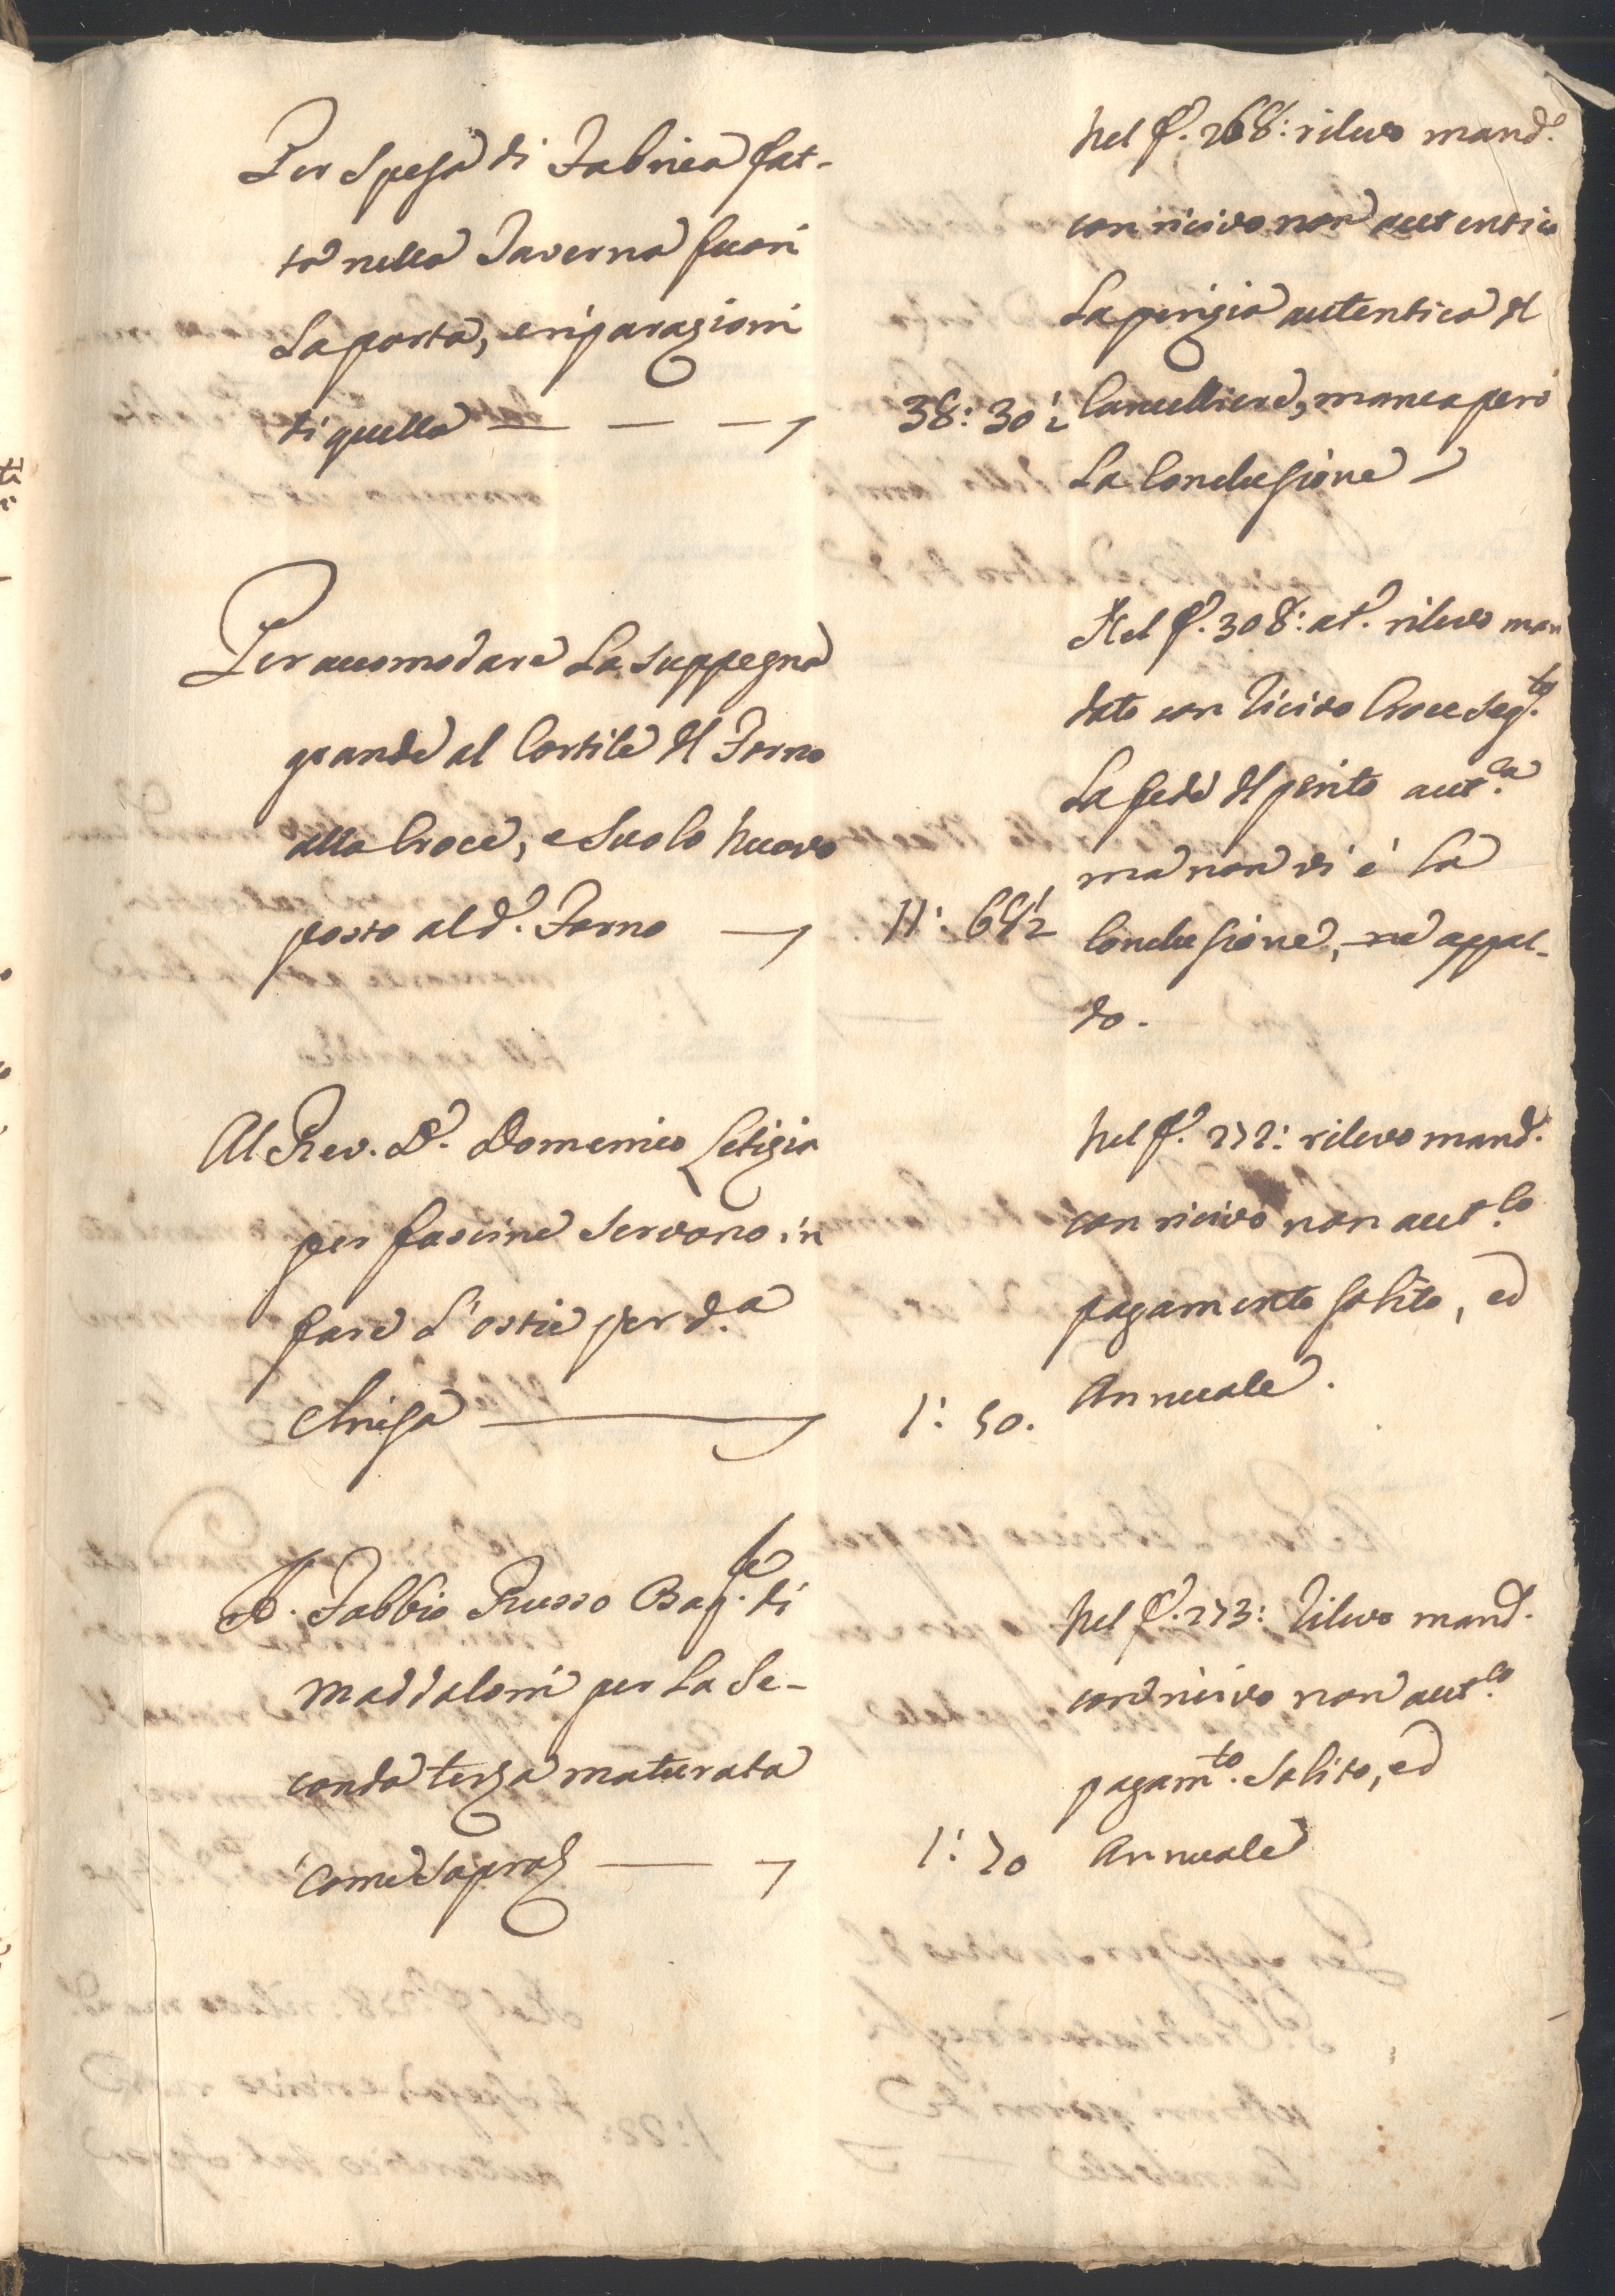 Per Spesa di Fabrica fat-
ta nella Taverna fuori
La porta, e riparazioni
di quella — — —
38: 30½
Nel f.º 268: rilevo mand.º
con ricivo non autentico
La perizia autentica dl
Cancelliere, manca però
La Conclusione
Per accomodare La suppegna
grande al Cortile dl Forno
alla Croce, e Suolo Nuovo
posto al d.º Forno —
11: 68½
Nel f.º 308: at.º rilevo man
dato con ricivo Croce seg.to
La fede dl perito aut.ca
ma non vi è La
Conclusione, ne appal-
do.
Al Rev. D. Domenico Letizia
per fascine servono in
fare l'ostie per d.a
Chiesa —
1: 50.
Nel f.º 272: rilevo mand.
con ricivo non aut.co
pagamento solito, ed
Annuale.
A. Fabbio Russo Bag.le di
Maddaloni per La Se-
conda terza maturata
come sopra —
1: 70
Nel f.º 273: rilevo mand.
con ricivo non aut.co
pagam.to solito, ed
Annuale